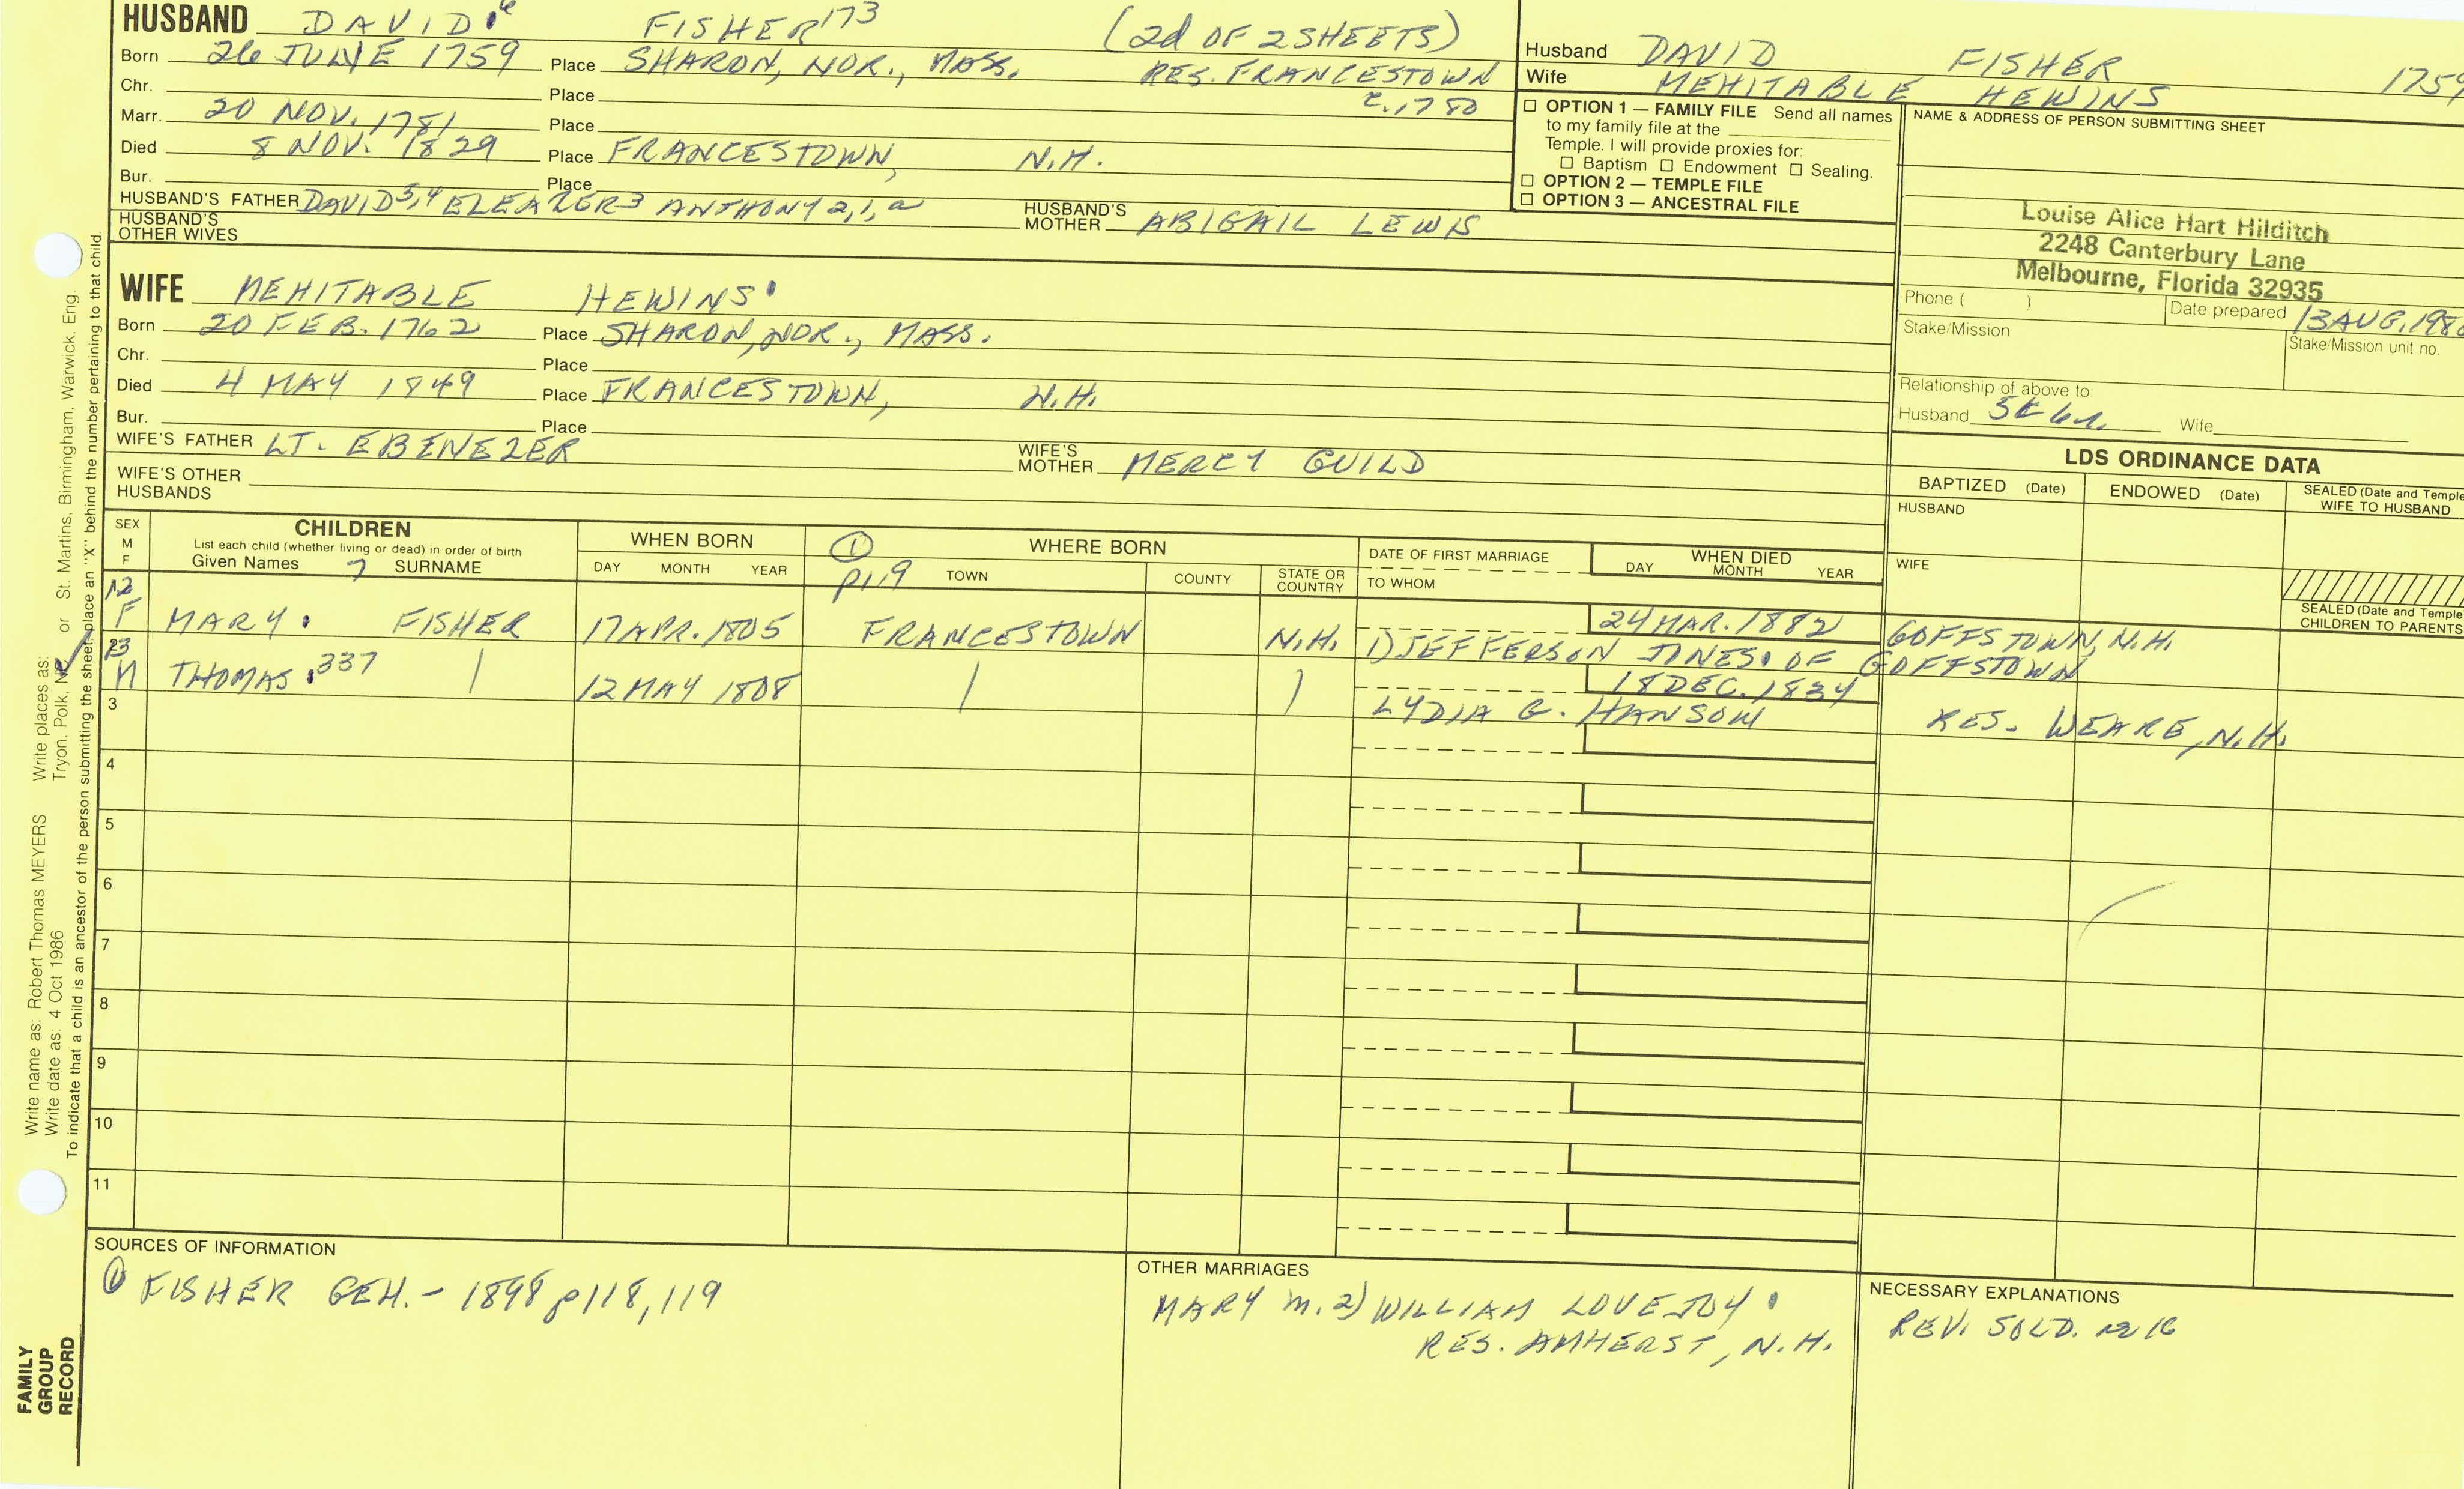 HUSBAND DAVID 6 FISHER 173 (2d OF 2 SHEETS)
Born 26 JUNE 1759 Place SHARON, NOR., MASS. RES. FRANCESTOWN
Chr. Place c. 1780
Marr. 20 NOV. 1781 Place
Died 8 NOV. 1829 Place FRANCESTOWN, N.H.
Bur. Place
HUSBAND'S FATHER DAVID 5,4 ELEAZER 3 ANTHONY 2,1,a HUSBAND'S MOTHER ABIGAIL LEWIS
HUSBAND'S OTHER WIVES
Husband DAVID FISHER 1759
Wife MEHITABLE HEWINS
☐ OPTION 1 — FAMILY FILE Send all names
to my family file at the
Temple. I will provide proxies for:
☐ Baptism ☐ Endowment ☐ Sealing.
☐ OPTION 2 — TEMPLE FILE
☐ OPTION 3 — ANCESTRAL FILE
NAME & ADDRESS OF PERSON SUBMITTING SHEET
Louise Alice Hart Hilditch
2248 Canterbury Lane
Melbourne, Florida 32935
Phone ( ) Date prepared 13 AUG. 198
Stake/Mission Stake/Mission unit no.
Relationship of above to
Husband Wife
WIFE MEHITABLE HEWINS
Born 20 FEB. 1762 Place SHARON, NOR., MASS.
Chr. Place
Died 4 MAY 1849 Place FRANCESTOWN, N.H.
Bur. Place
WIFE'S FATHER LT. EBENEZER WIFE'S MOTHER MERCY GUILD
WIFE'S OTHER HUSBANDS
LDS ORDINANCE DATA
BAPTIZED (Date) ENDOWED (Date) SEALED (Date and Temple) WIFE TO HUSBAND
HUSBAND
WIFE
SEALED (Date and Temple) CHILDREN TO PARENTS
SEX M F
CHILDREN
List each child (whether living or dead) in order of birth
Given Names 7 SURNAME
WHEN BORN
DAY MONTH YEAR
① p119
WHERE BORN
TOWN COUNTY STATE OR COUNTRY
DATE OF FIRST MARRIAGE
TO WHOM
WHEN DIED
DAY MONTH YEAR
12 F MARY FISHER 17 APR. 1805 FRANCESTOWN N.H. 24 MAR. 1882 GOFFSTOWN, N.H.
1) JEFFERSON JONES OF GOFFSTOWN
13 M THOMAS 337 | 12 MAY 1808 | | 18 DEC. 1834
LYDIA G. HANSOM RES. WEARE, N.H.
3
4
5
6
7
8
9
10
11
SOURCES OF INFORMATION
① FISHER GEN. - 1898 p118, 119
OTHER MARRIAGES
MARY m. 2) WILLIAM LOVEJOY
RES. AMHERST, N.H.
NECESSARY EXPLANATIONS
REV. SOLD. 16
Write name as: Robert Thomas MEYERS Write places as: Tryon, Polk, or St. Martins, Birmingham, Warwick, Eng.
Write date as: 4 Oct 1986
To indicate that a child is an ancestor of the person submitting the sheet, place an "X" behind the number pertaining to that child.
FAMILY
GROUP
RECORD